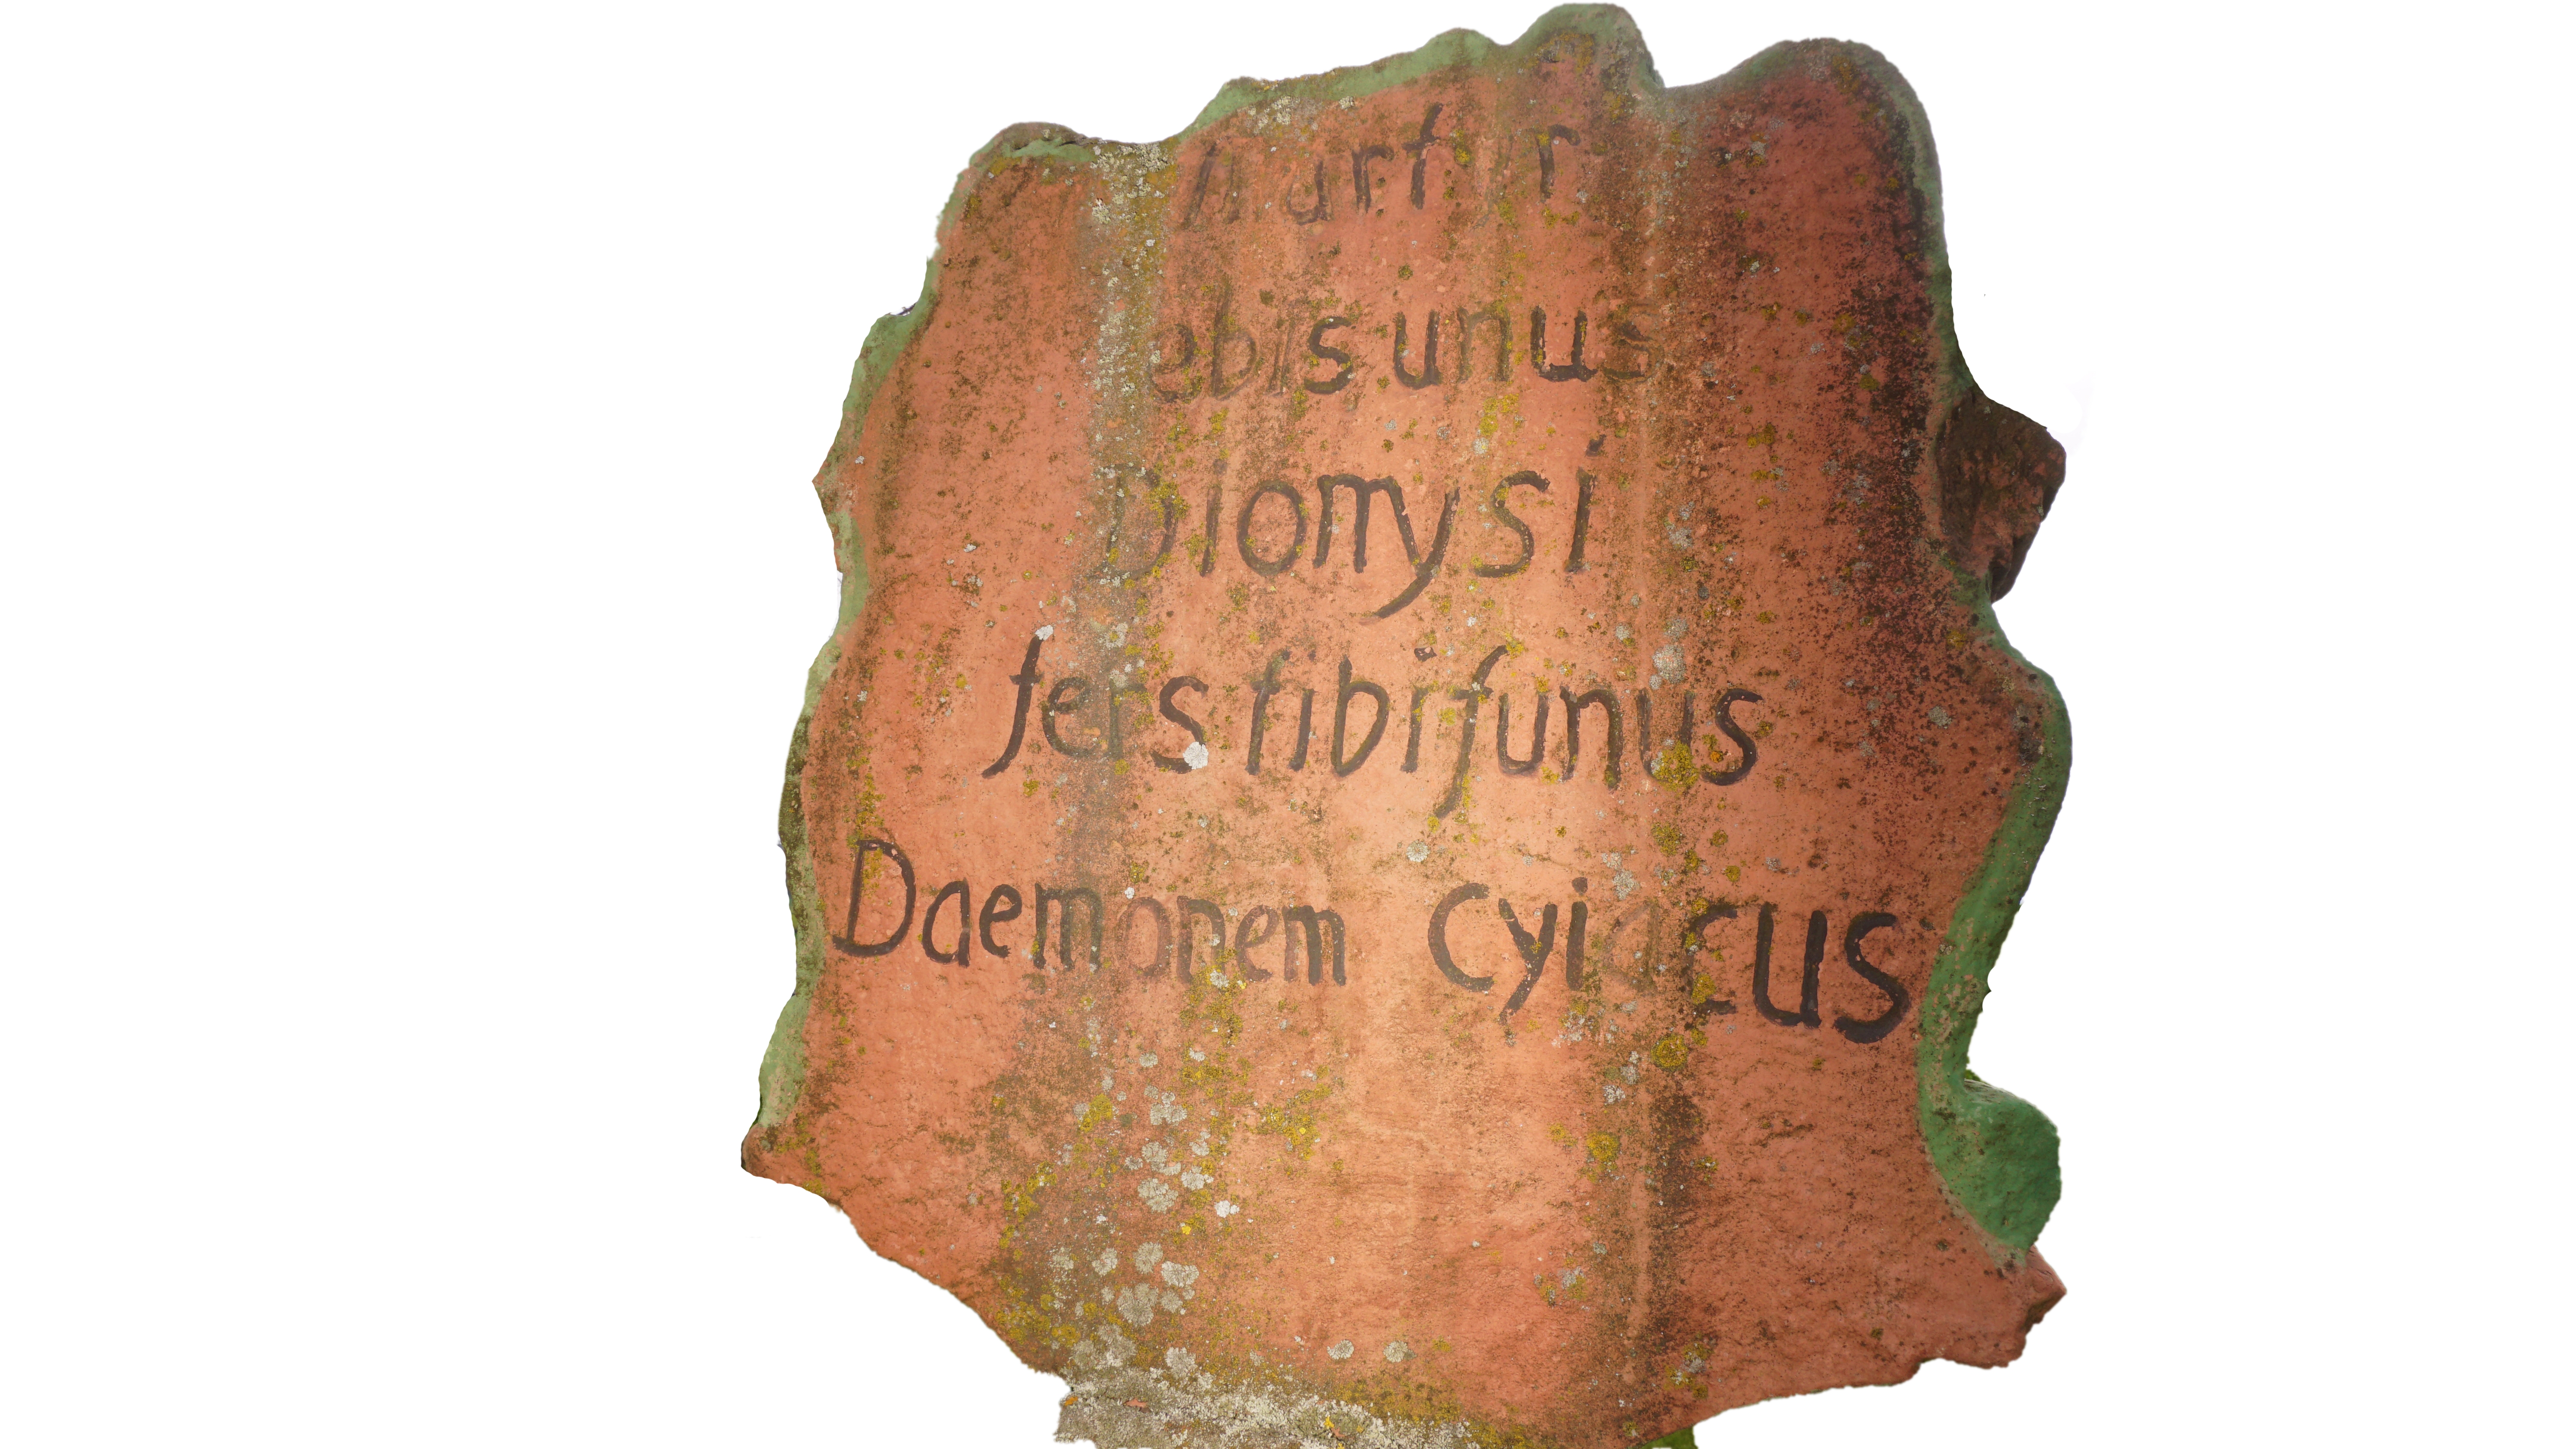 Martyr
ebis unus
Dionysi
fers tibi funus
Daemonem Cyiacus